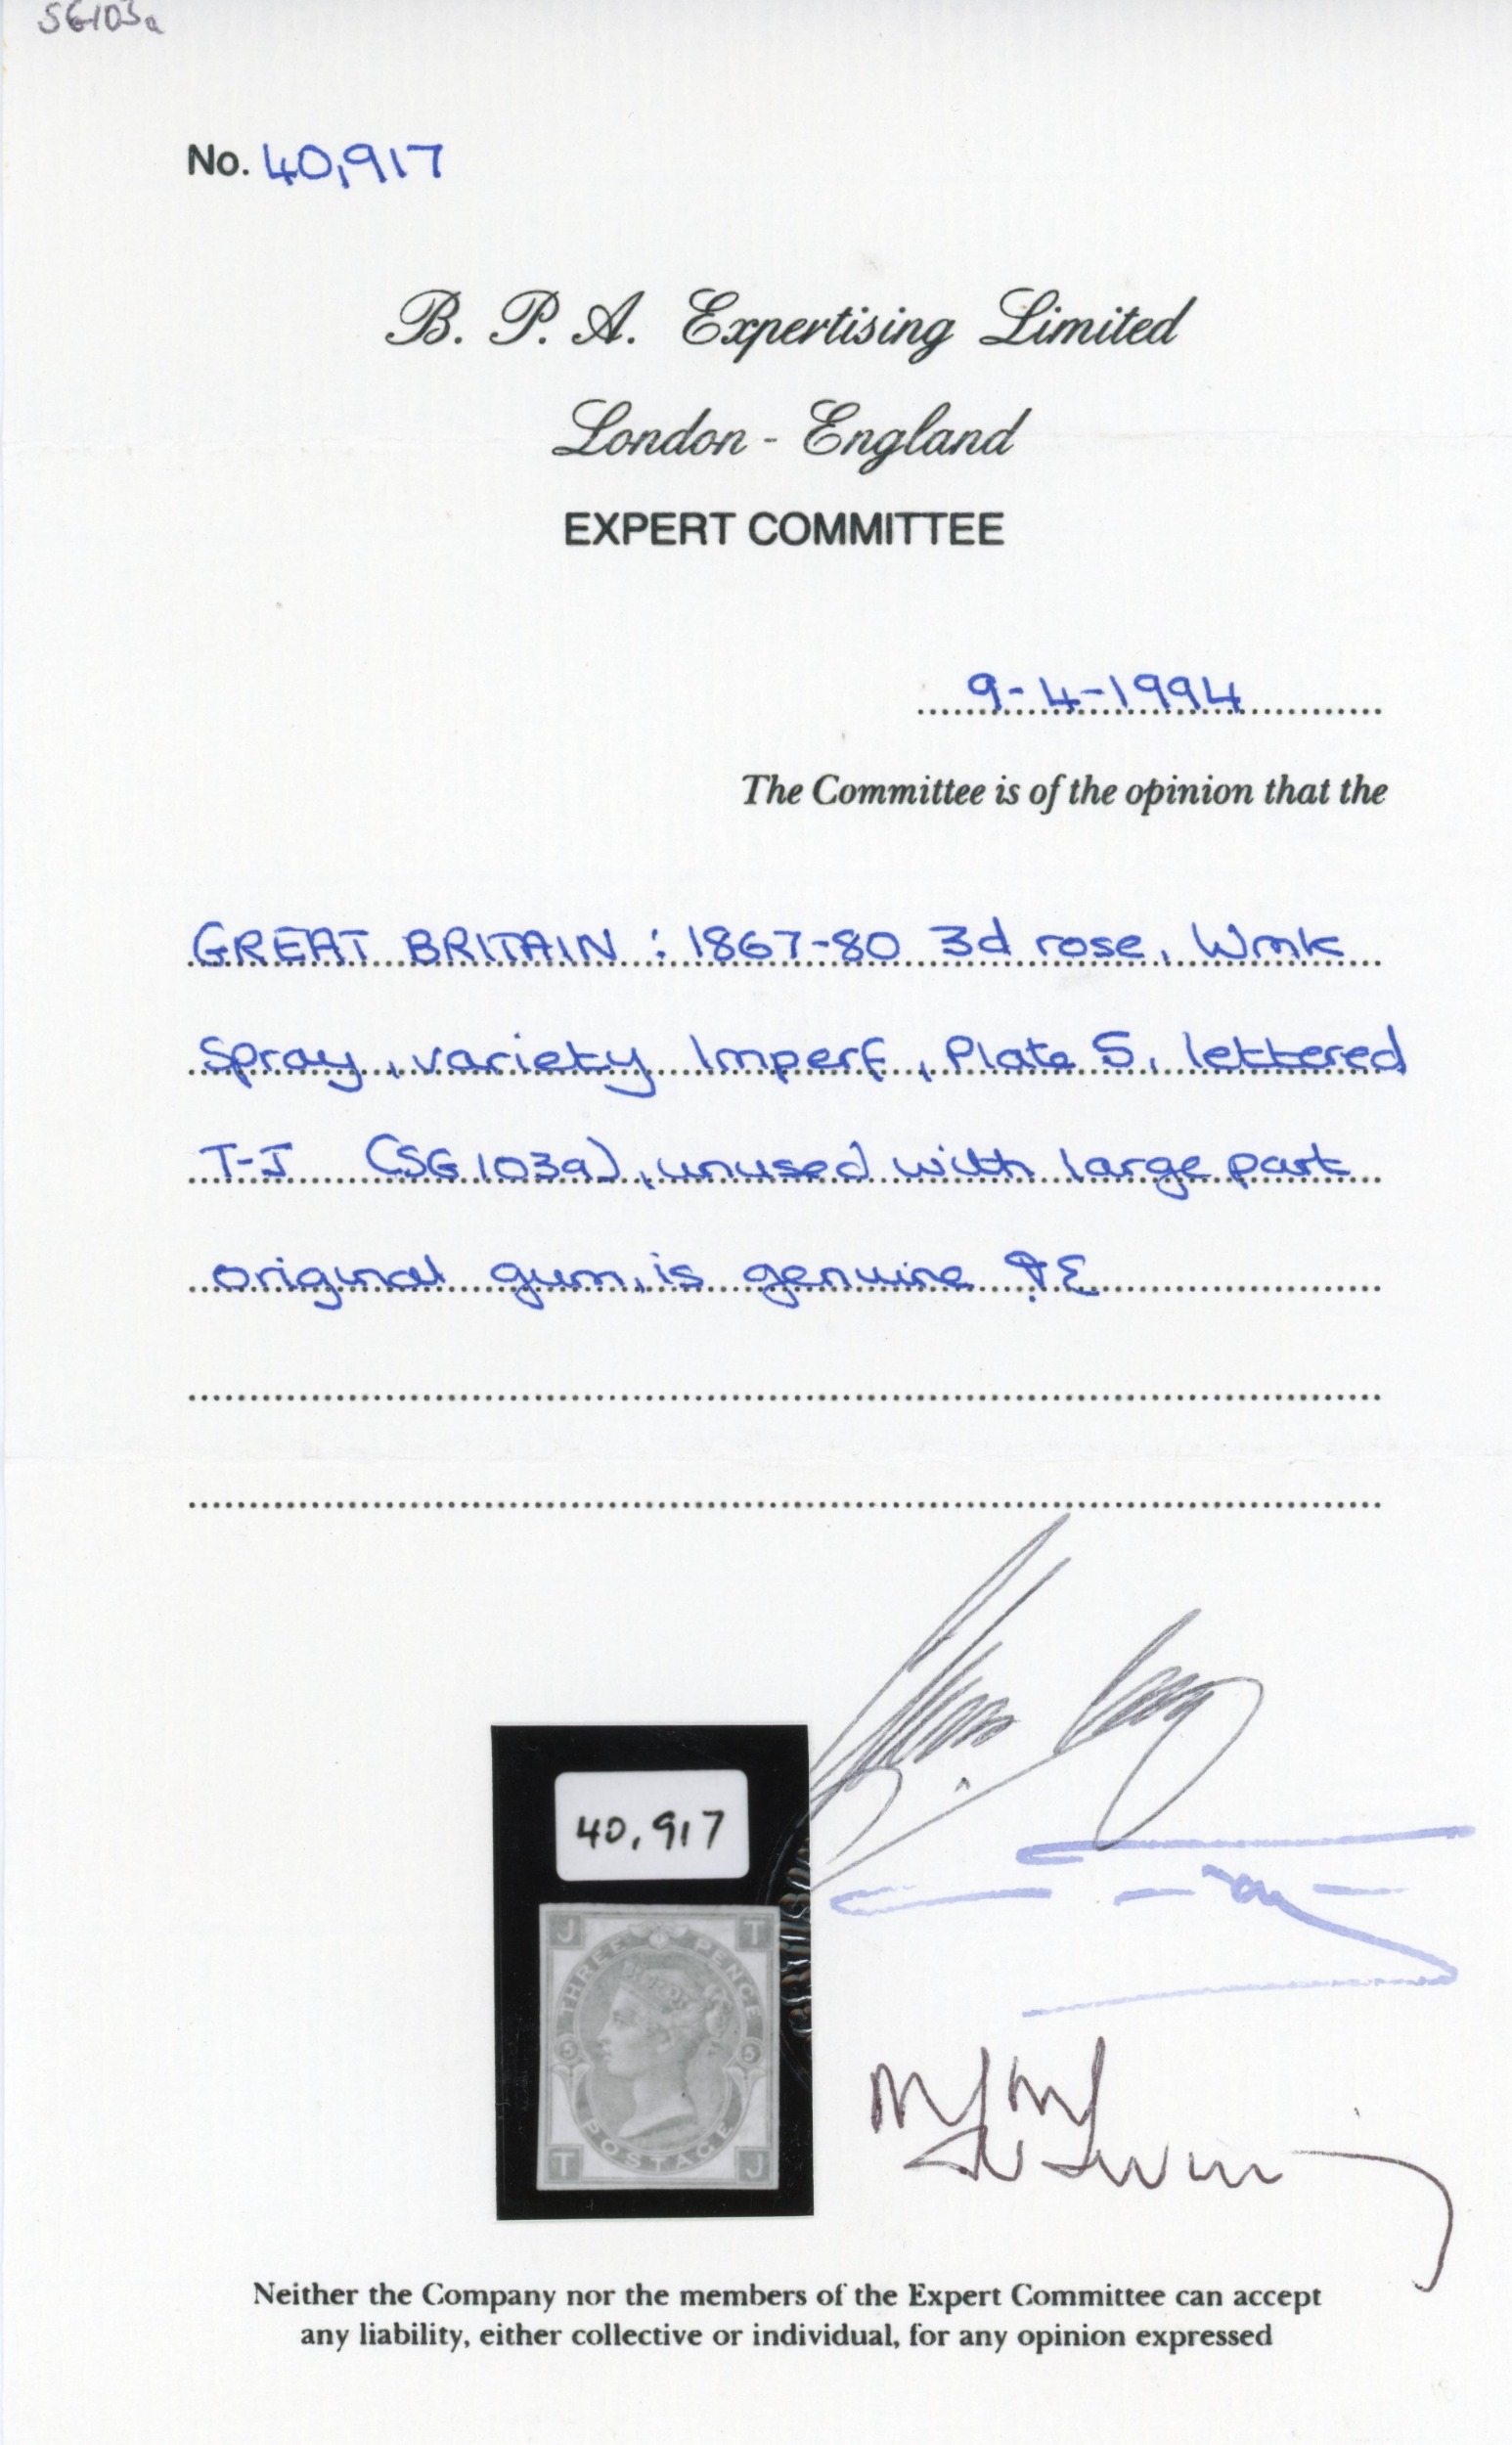 SG103a
No. 40,917
B. P. A. Expertising Limited
London - England
EXPERT COMMITTEE
9-4-1994
The Committee is of the opinion that the
GREAT BRITAIN : 1867-80 3d rose, Wmk
Spray, variety Imperf, Plate 5, lettered
T-J (SG 103a), unused with large part
original gum, is genuine
40,917
J T
THREE PENCE
5 5
POSTAGE
T J
Neither the Company nor the members of the Expert Committee can accept
any liability, either collective or individual, for any opinion expressed